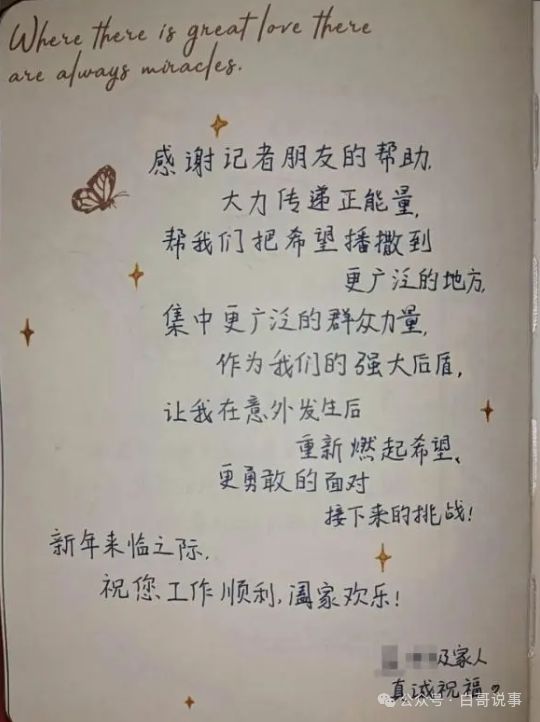 Where there is great love there
are always miracles.
感谢记者朋友的帮助,
大力传递正能量,
帮我们把希望播撒到
更广泛的地方,
集中更广泛的群众力量,
作为我们的强大后盾,
让我在意外发生后
重新燃起希望、
更勇敢的面对
接下来的挑战!
新年来临之际,
祝您工作顺利,阖家欢乐!
及家人
真诚祝福。
公众号·白哥说事